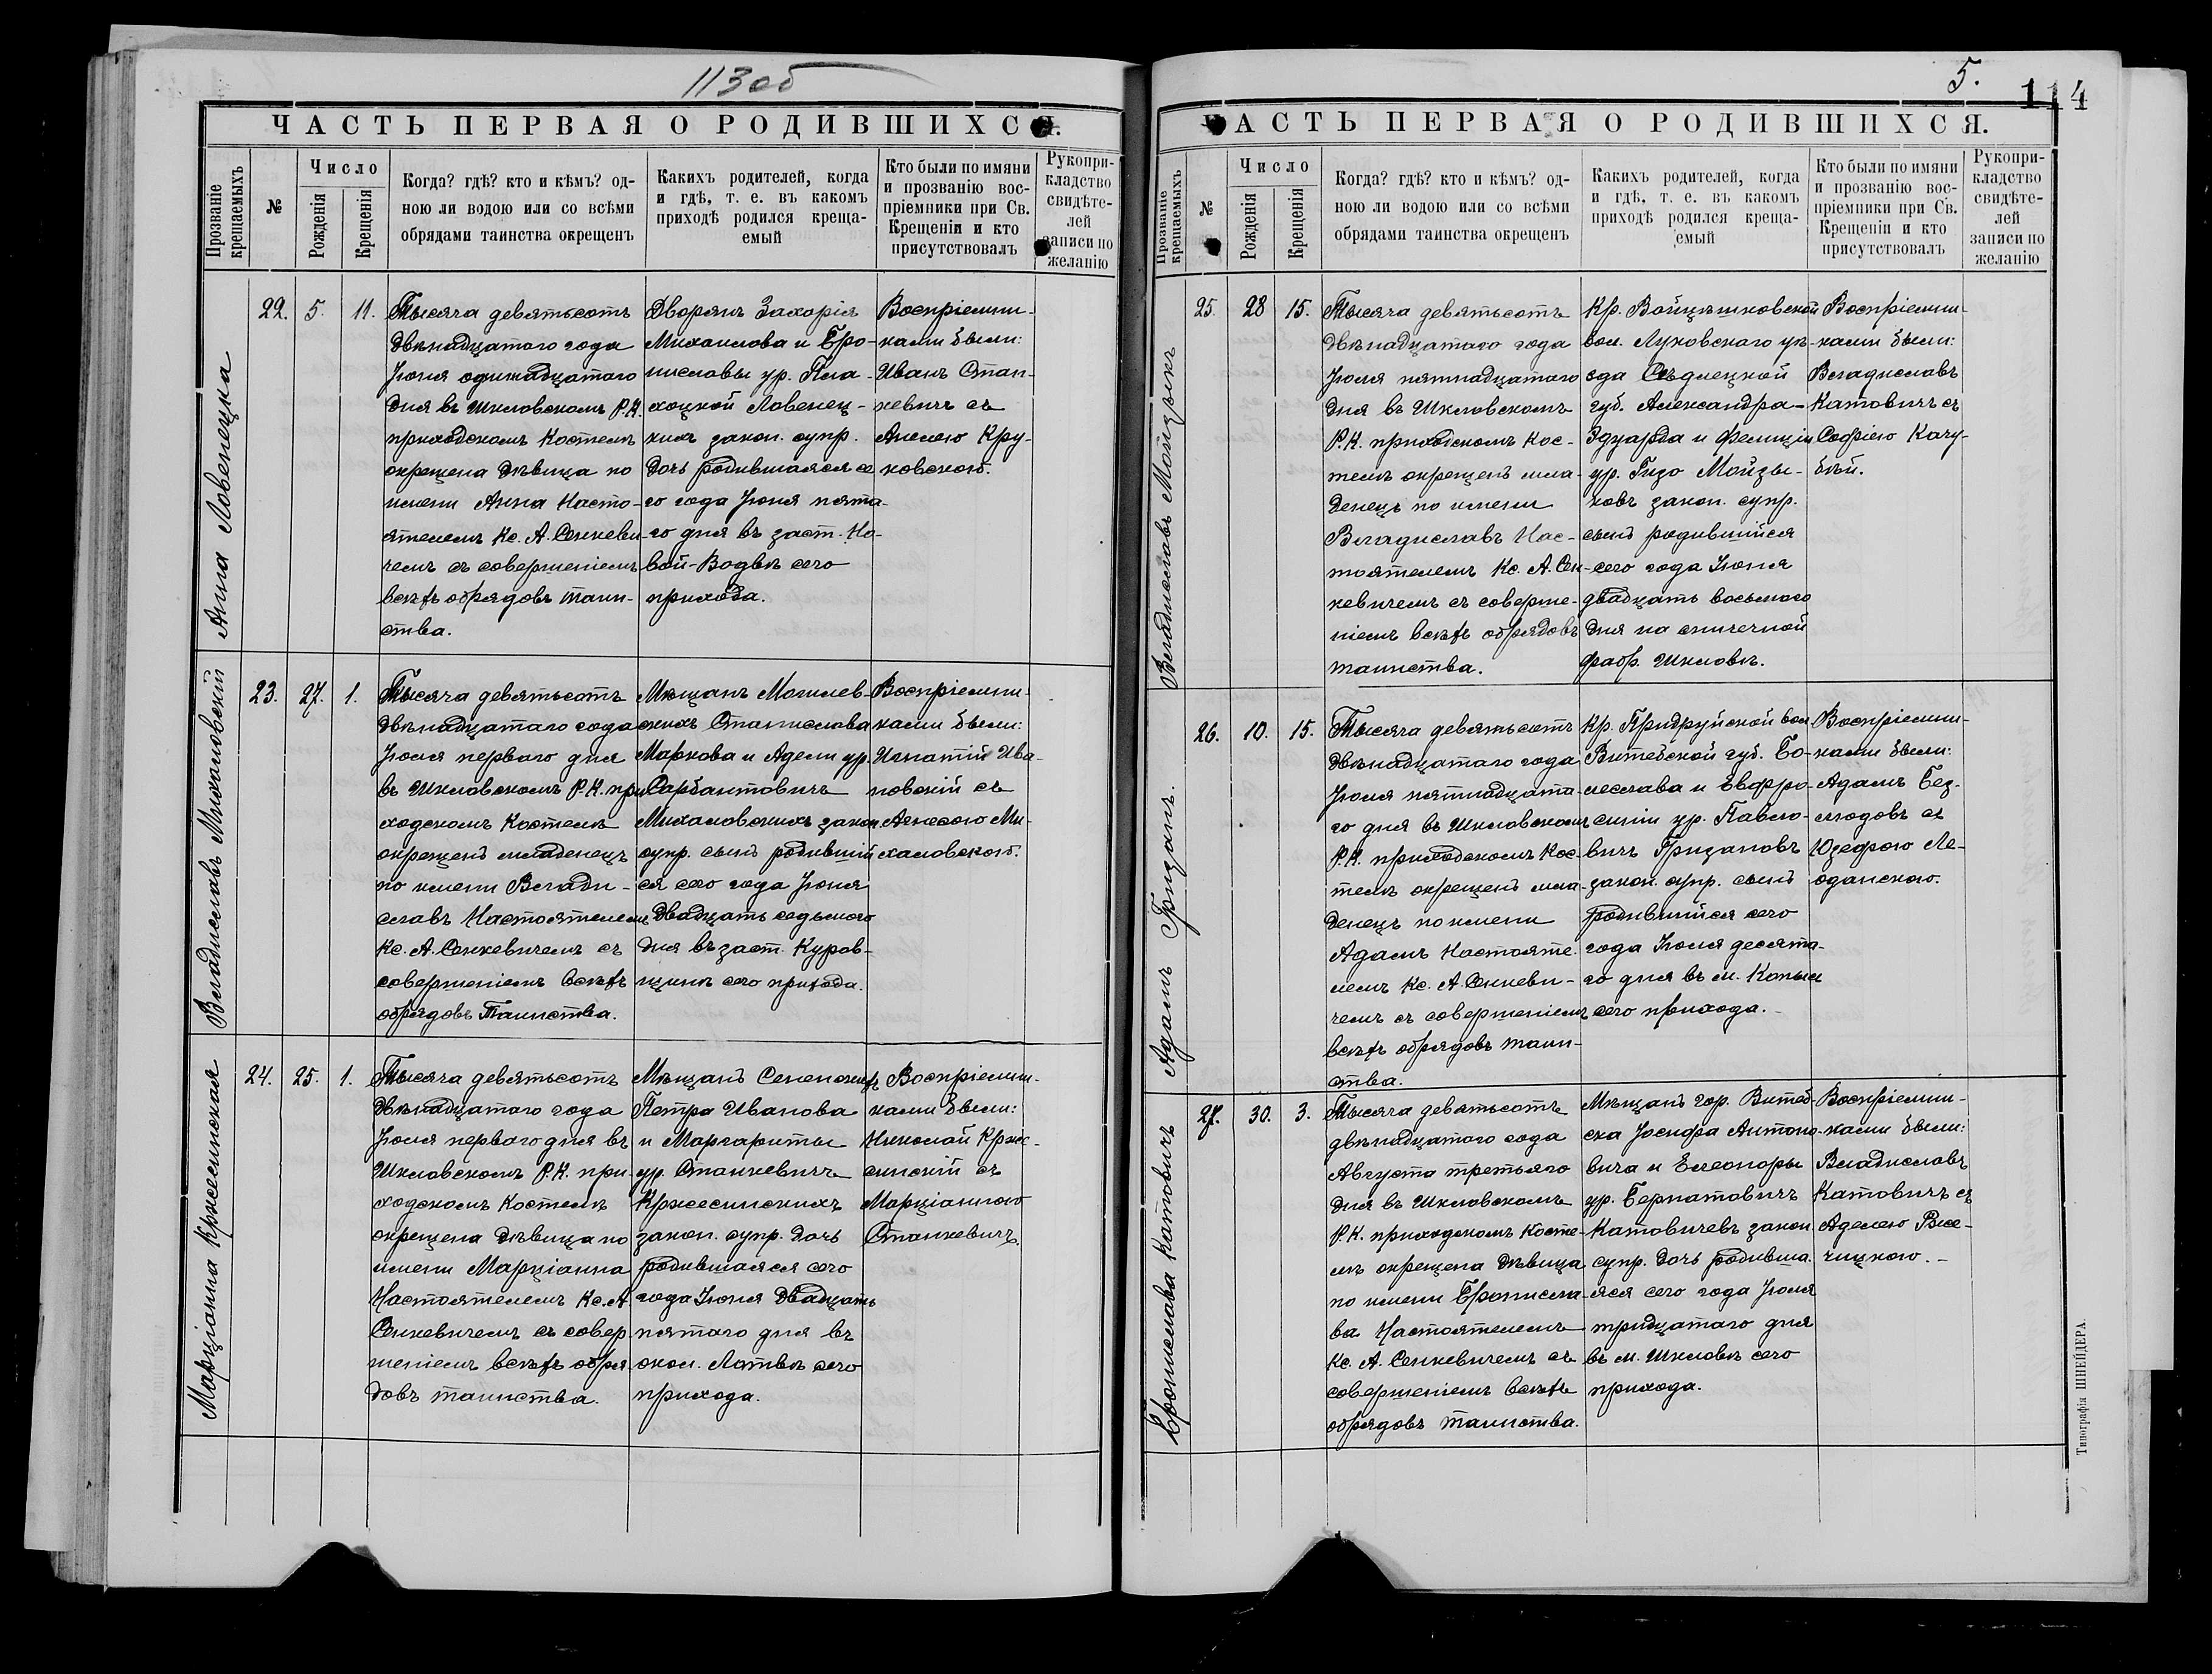 113 об
ЧАСТЬ ПЕРВАЯ О РОДИВШИХСЯ.
Прозваніе крещаемыхъ
№
Число
Рожденія
Крещенія
Когда? гдѣ? кто и кѣмъ? од-
ною ли водою или со всѣми
обрядами таинства окрещенъ
Какихъ родителей, когда
и гдѣ, т. е. въ какомъ
приходѣ родился креща-
емый
Кто были по имяни
и прозванію вос-
пріемники при Св.
Крещеніи и кто
присутствовалъ
Рукопри-
кладство
свидѣте-
лей
записи по
желанію
Анна Ловенецка
22. 5. 11.
Тысяча девятьсотъ
двѣнадцатаго года
Іюня одинадцатаго
дня въ Шкловскомъ Р.К.
приходскомъ Костелѣ
окрещена дѣвица по
имени Анна Насто-
ятелемъ Кс. А. Сенкеви-
чемъ съ совершеніемъ
всѣхъ обрядовъ таин-
ства.
Дворянъ Захарія
Михаилова и Бро-
ниславы ур. Пла-
хоцкой Ловенец-
кихъ закон. супр.
дочь родившаяся се
го года Іюня пята-
го дня въ заст. Но-
вой-Водвѣ сего
прихода.
Воспріемни-
ками были:
Иванъ Стан-
кевичъ съ
Анелею Кру-
ковской.
Владиславъ Михаловскій
23. 27. 1.
Тысяча девятьсотъ
двѣнадцатаго года
Іюля перваго дня
въ Шкловскомъ Р.К. при
ходскомъ Костелѣ
окрещенъ младенецъ
по имени Влади-
славъ Настоятелемъ
Кс. А. Сенкевичемъ съ
совершеніемъ всѣхъ
обрядовъ Таинства.
Мѣщанъ Могилев-
скихъ Станислава
Маркова и Адели ур.
Сарбантовичъ
Михаловскихъ закон
супр. сынъ родившій
ся сего года Іюня
двадцать седьмого
дня въ заст. Куров-
щинѣ сего прихода.
Воспріемни-
ками были:
Игнатій Ива-
новскій съ
Агнесою Ми-
халовской.
Марціанна Кржесинская
24. 25. 1.
Тысяча девятьсотъ
двѣнадцатаго года
Іюля перваго дня въ
Шкловскомъ Р.К. при-
ходскомъ Костелѣ
окрещена дѣвица по
имени Марціанна
Настоятелемъ Кс. А
Сенкевичемъ съ совер
шеніемъ всѣхъ обря
довъ таинства.
Мѣщанъ Сенненскихъ
Петра Иванова
и Маргариты
ур. Станкевичъ
Кржесинскихъ
закон. супр. дочь
родившаяся сего
года Іюня двадцать
пятаго дня въ
окол. Латвѣ сего
прихода.
Воспріемни-
ками были:
Николай Крже-
синскій съ
Марціанною
Станкевичъ.
5.
114
ЧАСТЬ ПЕРВАЯ О РОДИВШИХСЯ.
Прозваніе крещаемыхъ
№
Число
Рожденія
Крещенія
Когда? гдѣ? кто и кѣмъ? од-
ною ли водою или со всѣми
обрядами таинства окрещенъ
Какихъ родителей, когда
и гдѣ, т. е. въ какомъ
приходѣ родился креща-
емый
Кто были по имяни
и прозванію вос-
пріемники при Св.
Крещеніи и кто
присутствовалъ
Рукопри-
кладство
свидѣте-
лей
записи по
желанію
Владиславъ Мойзыкъ
25. 28 15.
Тысяча девятьсотъ
двѣнадцатаго года
Іюля пятнадцатаго
дня въ Шкловскомъ
Р.К. приходскомъ Кос-
телѣ окрещенъ мла-
денецъ по имени
Владиславъ Нас-
тоятелемъ Кс. А. Сен-
кевичемъ съ соверше-
ніемъ всѣхъ обрядовъ
таинства.
Кр. Войцѣшковской
вол. Луковскаго уѣ-
зда Сѣдлецкой
губ. Александра-
Эдуарда и Фелиціи
ур. Гизо Мойзы-
ковъ закон. супр.
сынъ родившійся
сего года Іюня
двадцать восьмого
дня на спичечной
фабр. Шкловѣ.
Воспріемни-
ками были:
Владиславъ
Катовичъ съ
Софіею Качу-
бѣй.
Адамъ Гризанъ.
26. 10. 15.
Тысяча девятьсотъ
двѣнадцатаго года
Іюля пятнадцата-
го дня въ Шкловскомъ
Р.К. приходскомъ Кос-
телѣ окрещенъ мла-
денецъ по имени
Адамъ Настояте-
лемъ Кс. А. Сенкеви-
чемъ съ совершеніемъ
всѣхъ обрядовъ таин-
ства.
Кр. Придруйской вол
Витебской губ. Бо-
леслава и Евфро-
синіи ур. Павло-
вичъ Гризановъ
закон. супр. сынъ
родившійся сего
года Іюля десята-
го дня въ м. Копысь
сего прихода.
Воспріемни-
ками были:
Адамъ Без-
людовъ съ
Юзефою Ле-
оданскою.
Бронислава Катовичъ
27. 30. 3.
Тысяча девятьсотъ
двѣнадцатаго года
Августа третьяго
дня въ Шкловскомъ
Р.К. приходскомъ Косте-
лѣ окрещена дѣвица
по имени Бронисла-
ва Настоятелемъ
Кс. А. Сенкевичемъ съ
совершеніемъ всѣхъ
обрядовъ таинства.
Мѣщанъ гор. Витеб
ска Іосифа Антоно-
вича и Елеоноры
ур. Бернатовичъ
Катовичевъ закон.
супр. дочь родивша-
яся сего года Іюля
тридцатаго дня
въ м. Шкловѣ сего
прихода.
Воспріемни-
ками были:
Владиславъ
Катовичъ съ
Аделею Вкс-
чицкою.-
Типографія ШНЕЙДЕРА.